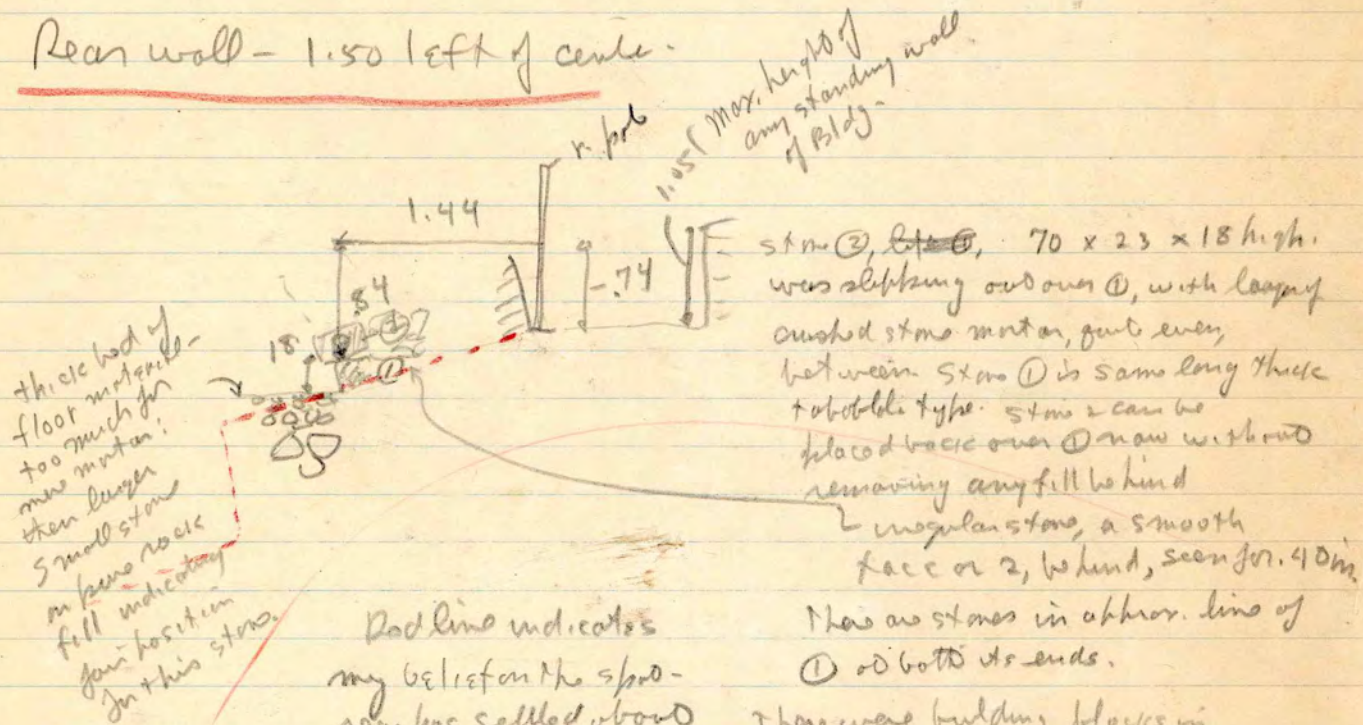 Rear wall - 1.50 left of cente.
r. pole
1.05 ( Max. height of
any standing wall
of Bldg.
1.44
- .74
.84
18
②
①
thick bed of
floor material -
too much for
mere mortar:
then larger
small stone
on pure rock
fill indicating
fair position
for this stone.
stone ②, 70 x 23 x 18 high.
was slipping out over ①, with layer of
crushed stone mortar, quite even,
between. Stone ① is same long thick
type. Stone 2 can be
placed back over ① now without
removing any fill behind
irregular stone, a smooth
face or 2, behind, seen for .40 m.
There are stones in approx. line of
① at both its ends.
There were building blocks in
Red line indicates
my belief on the spot -
rear has settled about